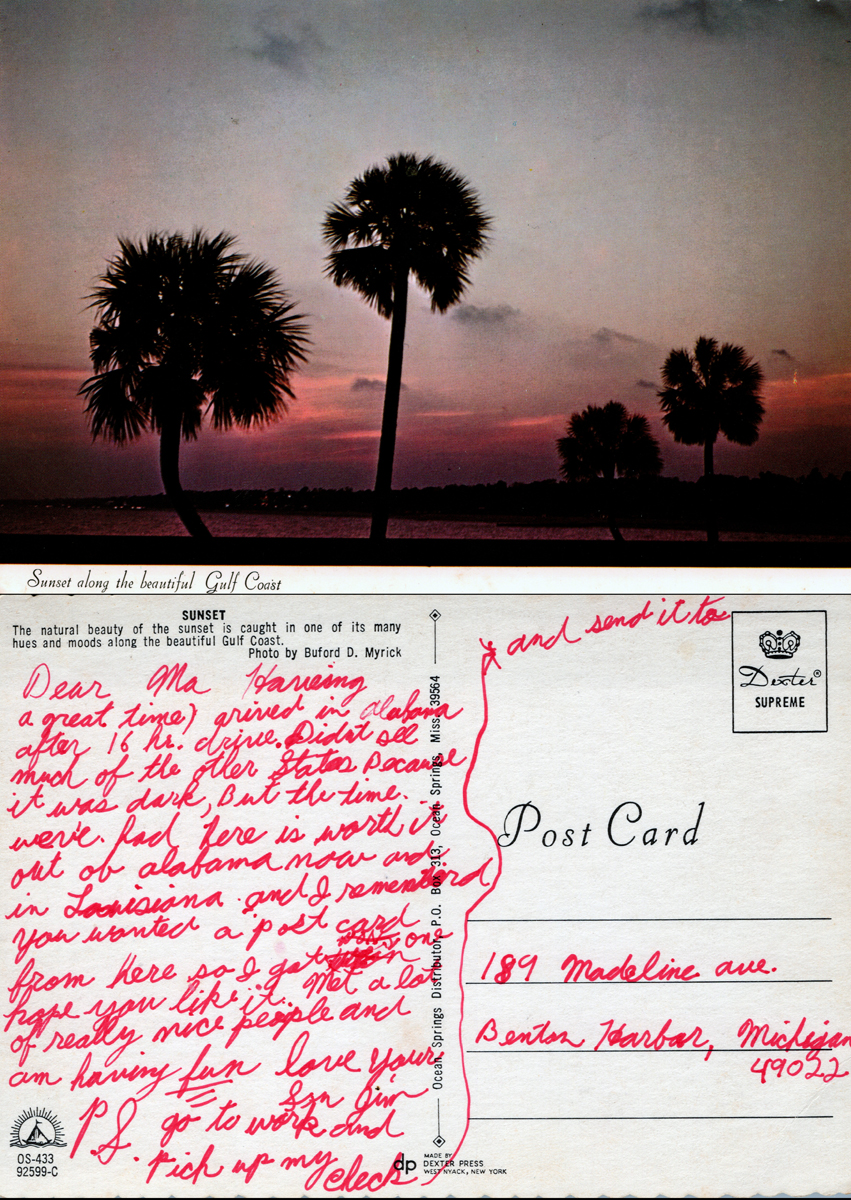 Sunset along the beautiful Gulf Coast
SUNSET
The natural beauty of the sunset is caught in one of its many
hues and moods along the beautiful Gulf Coast.
Photo by Buford D. Myrick
Dear Ma Haveing
a great time) arived in alabama
after 16 hr. drive. Didnt see
much of the other States because
it was dark, But the time
weve had here is worth it
out ov alabama now and
in Louisiana and I rememberd
you wanted a post card
from here so I got one
hope you like it. Met a lot
of really nice people and
am having fun love your
Son Jim
P.S. go to work and
Pick up my check
and send it to
OS-433
92599-C
Ocean Springs Distributor, P.O. Box 313, Ocean Springs, Miss. 39564
dp
MADE BY
DEXTER PRESS
WEST NYACK, NEW YORK
Dexter®
SUPREME
Post Card
189 Madeline ave.
Benton Harbor, Michigan
49022